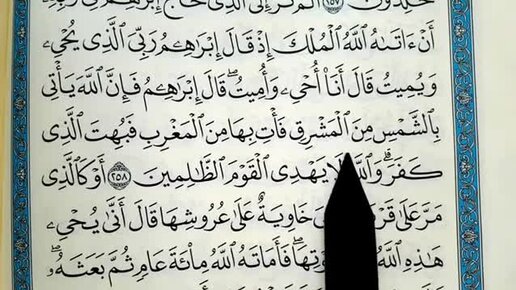 خَـٰلِدُونَ ﴿٢٥٧﴾ أَلَمْ تَرَ إِلَى ٱلَّذِى حَآجَّ إِبْرَٰهِـۧمَ فِى رَبِّهِۦٓ
أَنْ ءَاتَىٰهُ ٱللَّهُ ٱلْمُلْكَ إِذْ قَالَ إِبْرَٰهِـۧمُ رَبِّىَ ٱلَّذِى يُحْىِۦ
وَيُمِيتُ قَالَ أَنَا۠ أُحْىِۦ وَأُمِيتُ ۖ قَالَ إِبْرَٰهِـۧمُ فَإِنَّ ٱللَّهَ يَأْتِى
بِٱلشَّمْسِ مِنَ ٱلْمَشْرِقِ فَأْتِ بِهَا مِنَ ٱلْمَغْرِبِ فَبُهِتَ ٱلَّذِى
كَفَرَ ۗ وَٱللَّهُ لَا يَهْدِى ٱلْقَوْمَ ٱلظَّـٰلِمِينَ ﴿٢٥٨﴾ أَوْ كَٱلَّذِى
مَرَّ عَلَىٰ خَاوِيَةٌ عَلَىٰ عُرُوشِهَا قَالَ أَنَّىٰ يُحْىِۦ
هَـٰذِهِ ٱللَّهُ فَأَمَاتَهُ ٱللَّهُ مِا۟ئَةَ عَامٍ ثُمَّ بَعَثَهُۥ ۖ